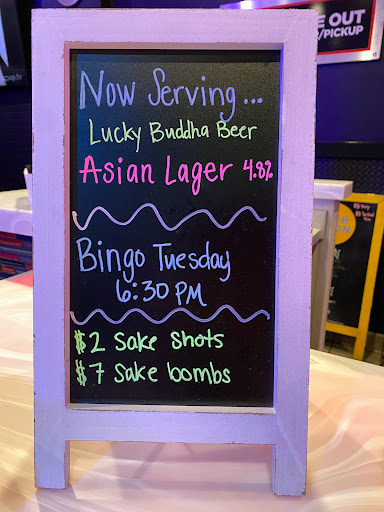 E OUT
/PICKUP
Now Serving...
Lucky Buddha Beer
Asian Lager 4.8%
Bingo Tuesday
6:30 PM
$2 Sake Shots
$7 Sake bombs